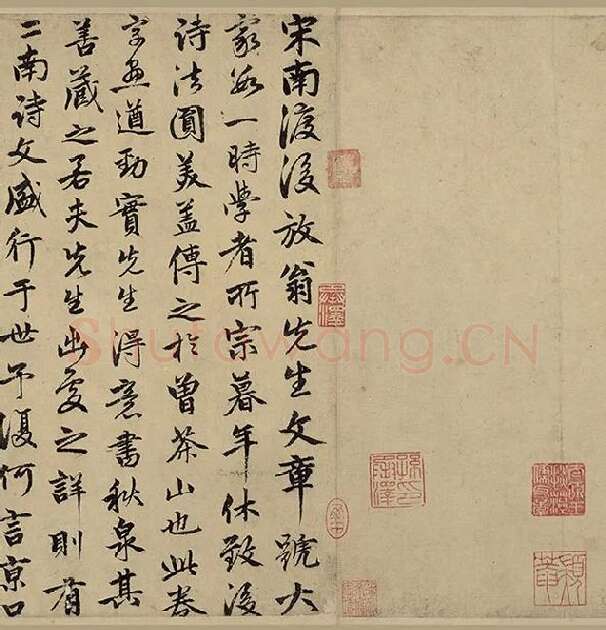 宋南渡後放翁先生文章號大
家為一時學者所宗暮年休致後
詩法圓美蓋傳之於曾茶山也此卷
字畫遒勁實先生得意書秋泉其
善藏之若夫先生出處之詳則有
二南詩文盛行于世予復何言京口
Shufawang.CN